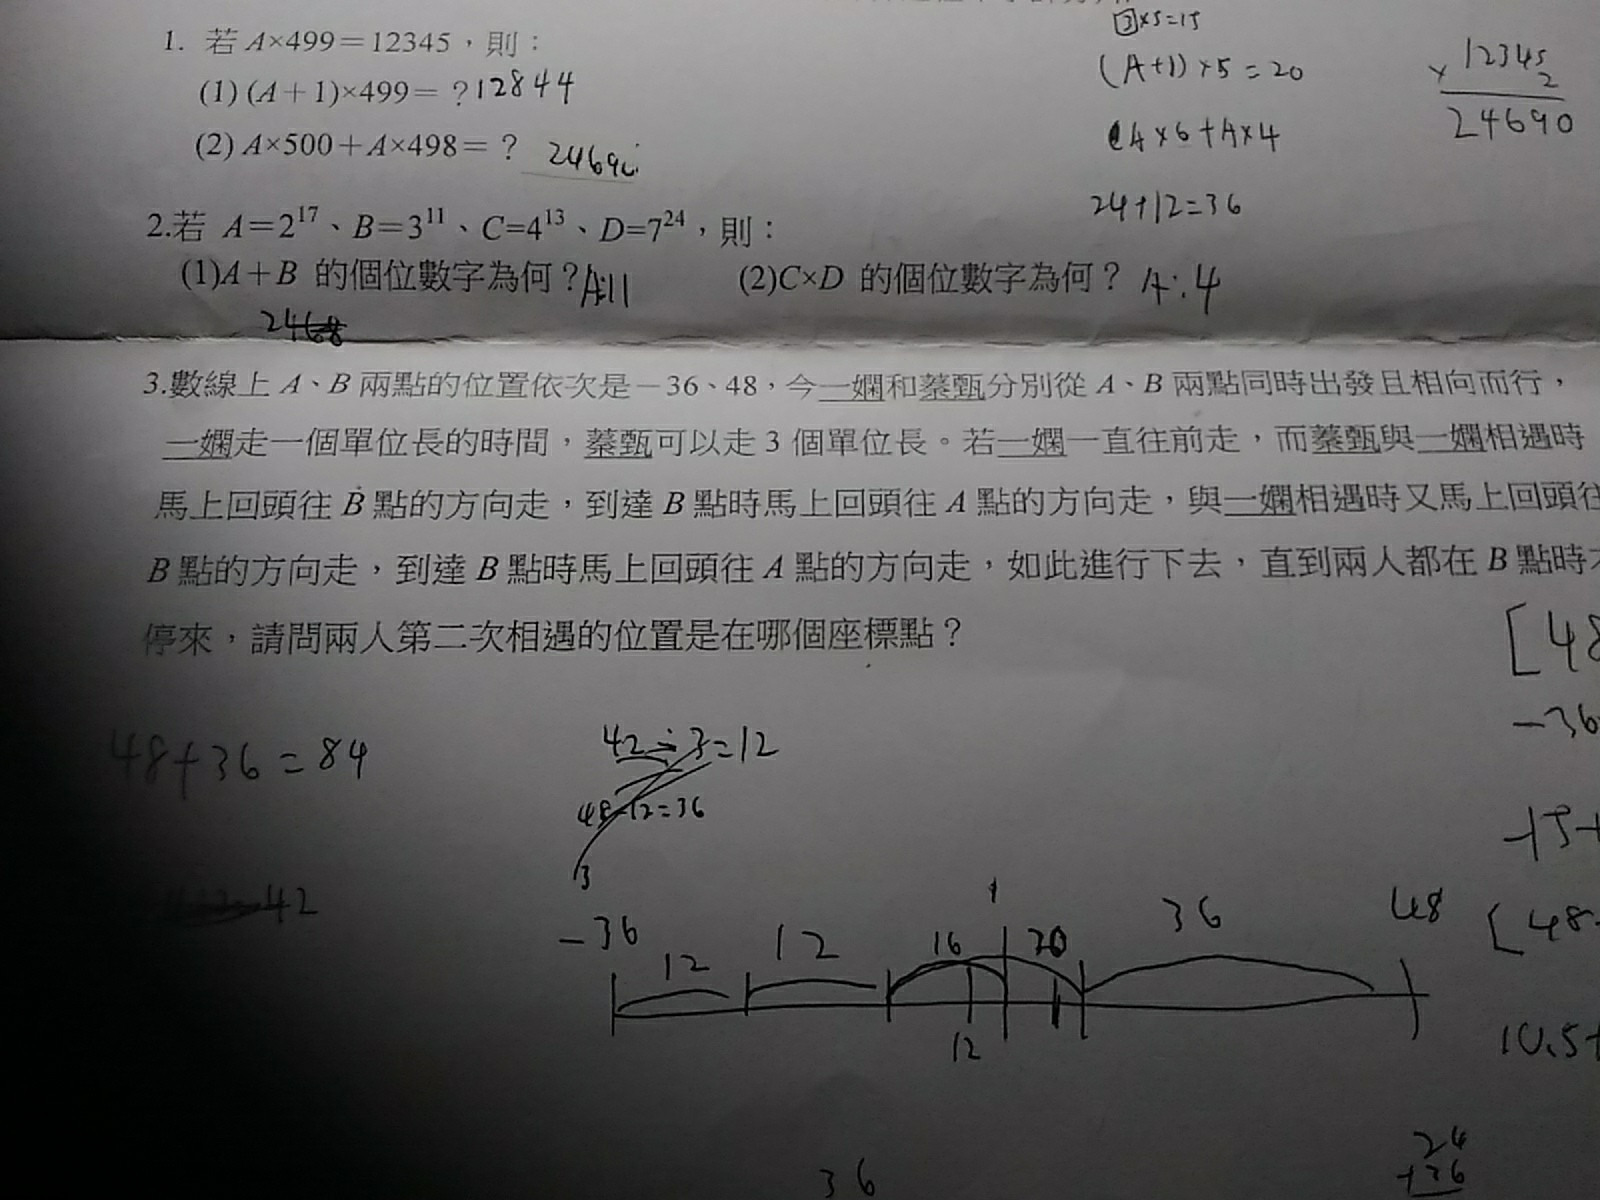 3×5=15
1. 若 A×499＝12345，則：
(A+1)×5=20
12345
× 2
24690
(1) (A＋1)×499＝？12844
A×6+A×4
(2) A×500＋A×498＝？
24+12=36
2.若 A＝2¹⁷、B＝3¹¹、C=4¹³、D=7²⁴，則：
(1)A＋B 的個位數字為何？A:11 (2)C×D 的個位數字為何？ A:4
3.數線上 A、B 兩點的位置依次是－36、48，今一嫻和蔡甄分別從 A、B 兩點同時出發且相向而行，
一嫻走一個單位長的時間，蔡甄可以走 3 個單位長。若一嫻一直往前走，而蔡甄與一嫻相遇時
馬上回頭往 B 點的方向走，到達 B 點時馬上回頭往 A 點的方向走，與一嫻相遇時又馬上回頭往
B 點的方向走，到達 B 點時馬上回頭往 A 點的方向走，如此進行下去，直到兩人都在 B 點時才
停來，請問兩人第二次相遇的位置是在哪個座標點？
[48
-36
48+36=84
42÷3=12
48-12=36
3
-15+
42
-36 12 12 16 20 36 48
[48-
12
10.5+
36
24
+36